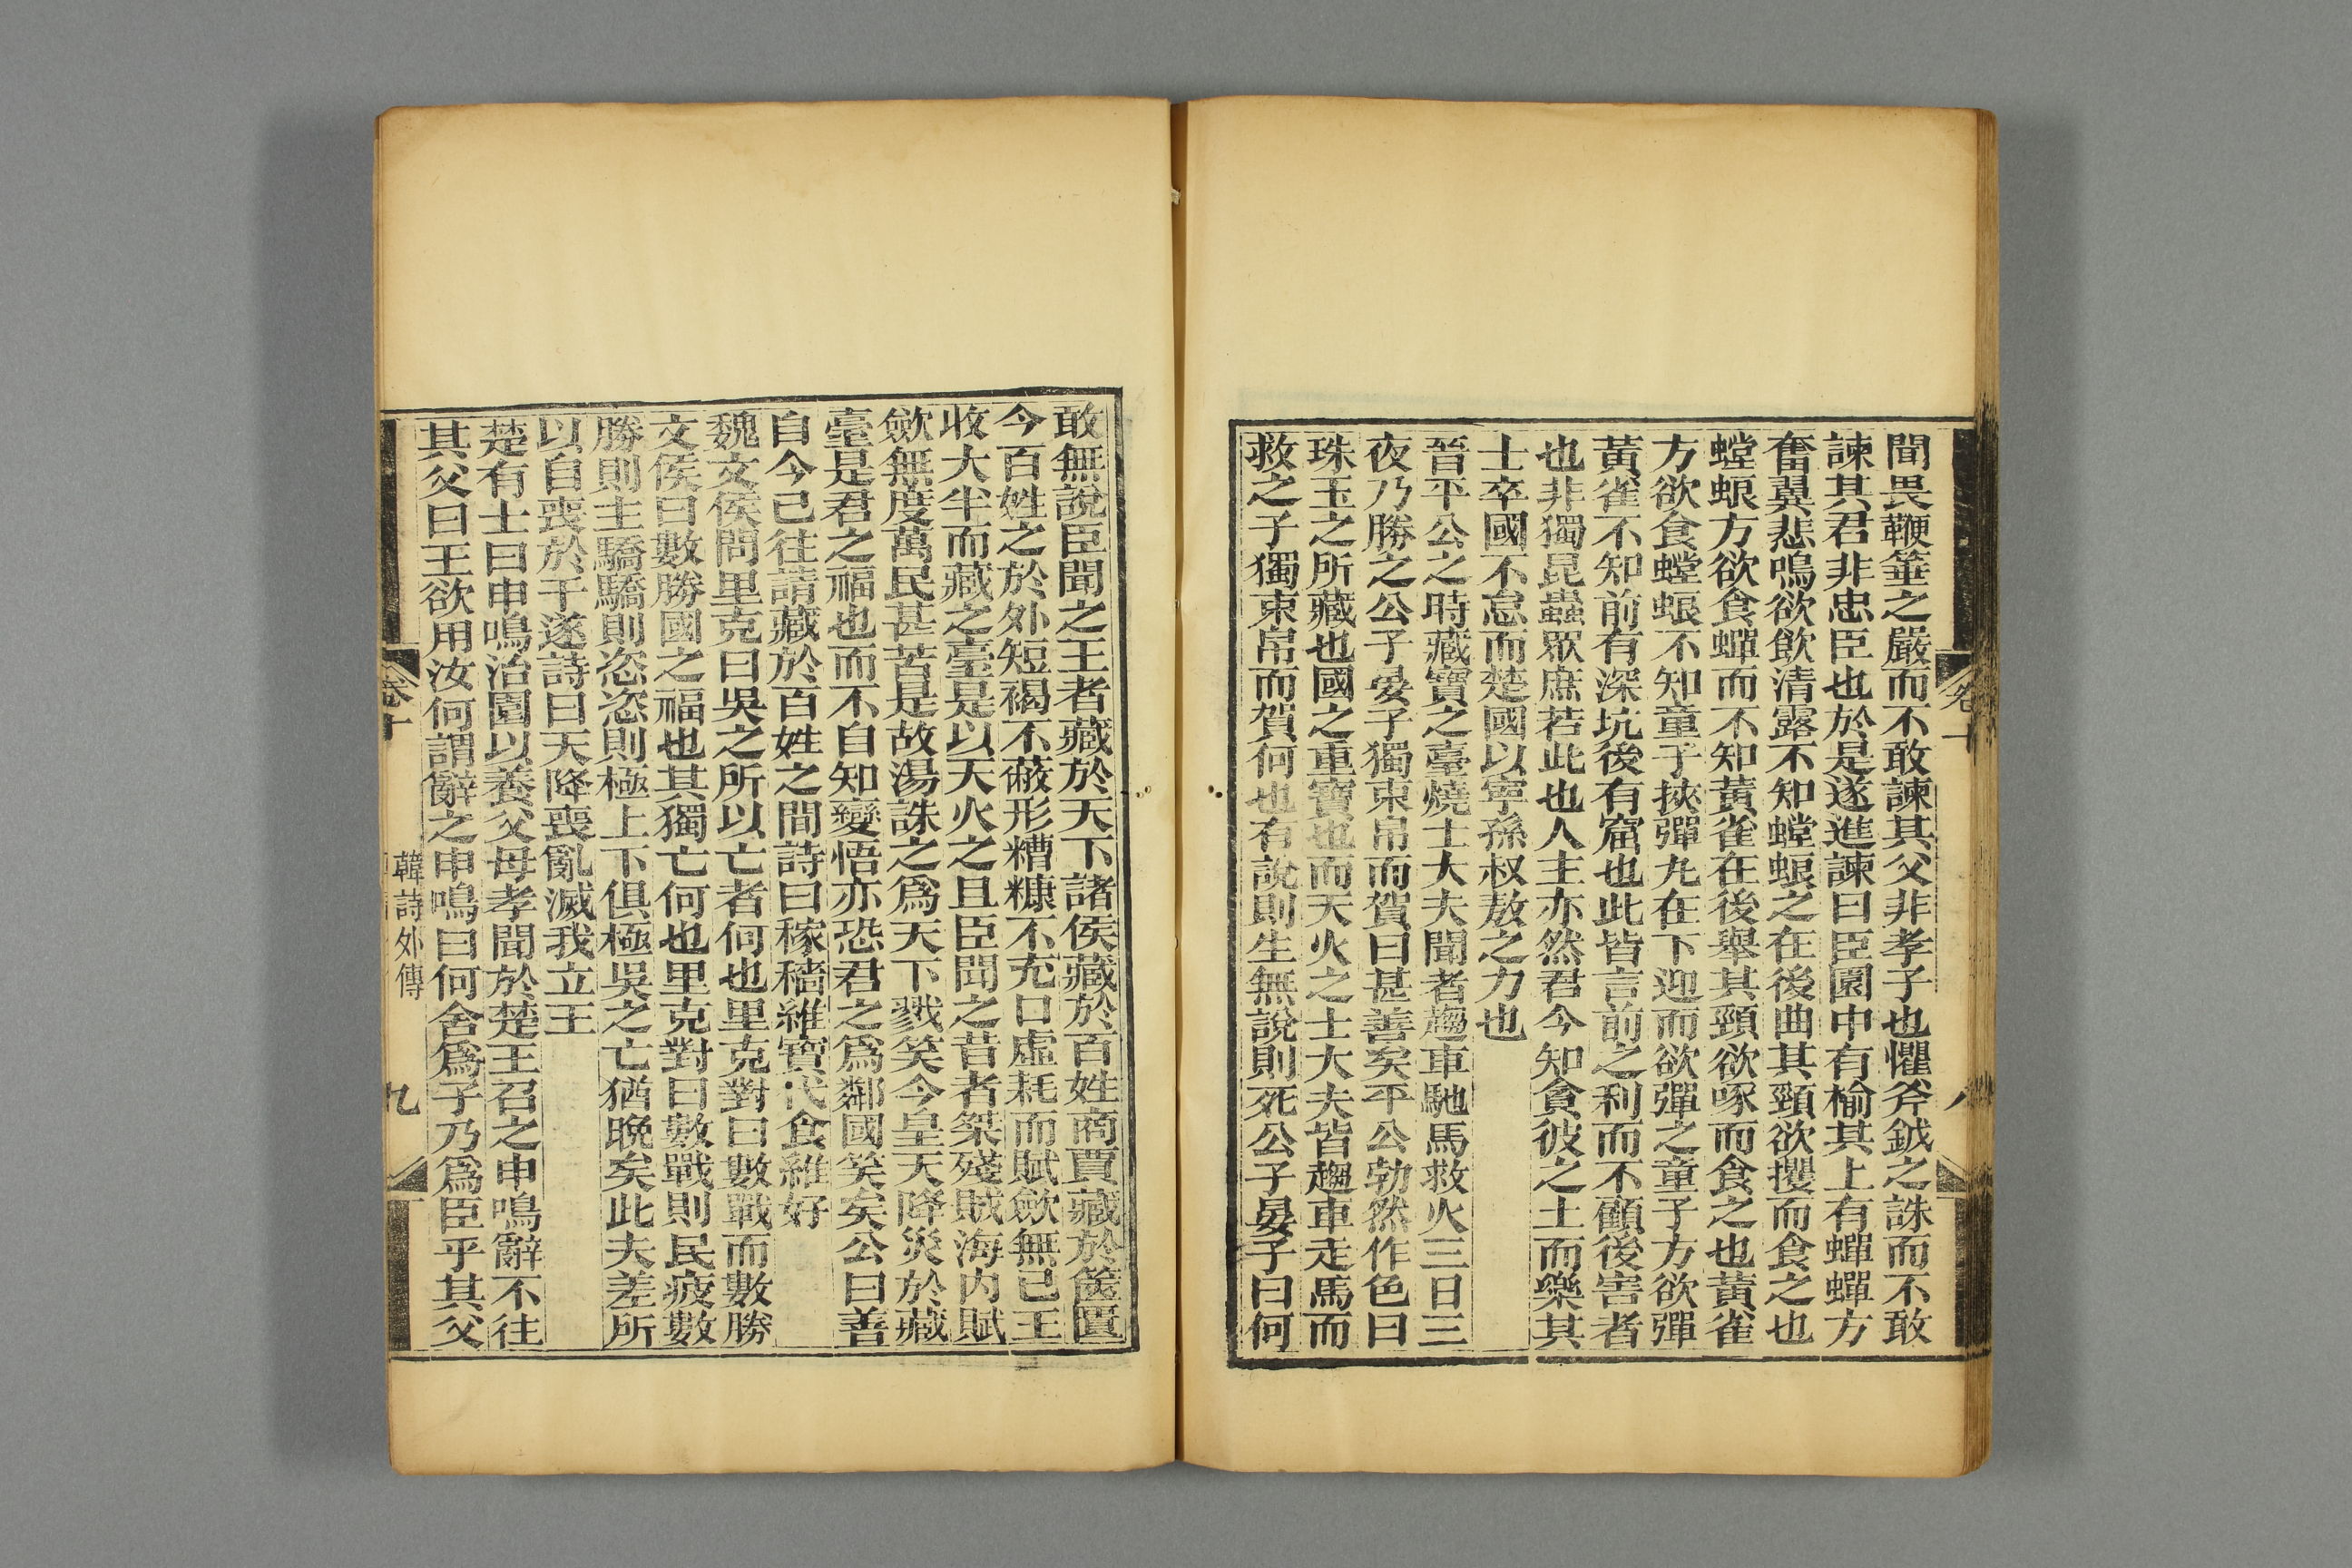 聞畏鞭箠之嚴而不敢諫其父非孝子也懼斧鉞之誅而不敢
諫其君非忠臣也於是遂進諫曰臣園中有榆其上有蟬蟬方
奮翼悲鳴欲飲清露不知螳蜋之在後曲其頸欲攫而食之也
螳蜋方欲食蟬而不知黃雀在後舉其頸欲啄而食之也黃雀
方欲食螳蜋不知童子挾彈丸在下迎而欲彈之童子方欲彈
黃雀不知前有深坑後有窟也此皆言前之利而不顧後害者
也非獨昆蟲眾庶若此也人主亦然君今知貪彼之土而樂其
士卒國不怠而楚國以寧孫叔敖之力也
晉平公之時藏寶之臺燒士大夫聞者趨車馳馬救火三日三
夜乃勝之公子晏子獨束帛而賀曰甚善矣平公勃然作色曰
珠玉之所藏也國之重寶也而天火之士大夫皆趨車走馬而
救之子獨束帛而賀何也有說則生無說則死公子晏子曰何
卷十
八
敢無說臣聞之王者藏於天下諸侯藏於百姓商賈藏於篋匱
今百姓之於外短褐不蔽形糟糠不充口虛耗而賦歛無已王
收大半而藏之臺是以天火之且臣聞之昔者桀殘賊海內賦
歛無度萬民甚苦是故湯誅之爲天下戮笑今皇天降災於藏
臺是君之福也而不自知變悟亦恐君之爲鄰國笑矣公曰善
自今已往請藏於百姓之間詩曰稼穡維寶代食維好
魏文侯問里克曰吳之所以亡者何也里克對曰數戰而數勝
文侯曰數勝國之福也其獨亡何也里克對曰數戰則民疲數
勝則主驕驕則恣恣則極上下俱極吳之亡猶晚矣此夫差所
以自喪於干遂詩曰天降喪亂滅我立王
楚有士曰申鳴治園以養父母孝聞於楚王召之申鳴辭不往
其父曰王欲用汝何謂辭之申鳴曰何舍爲子乃爲臣乎其父
卷十
韓詩外傳
九